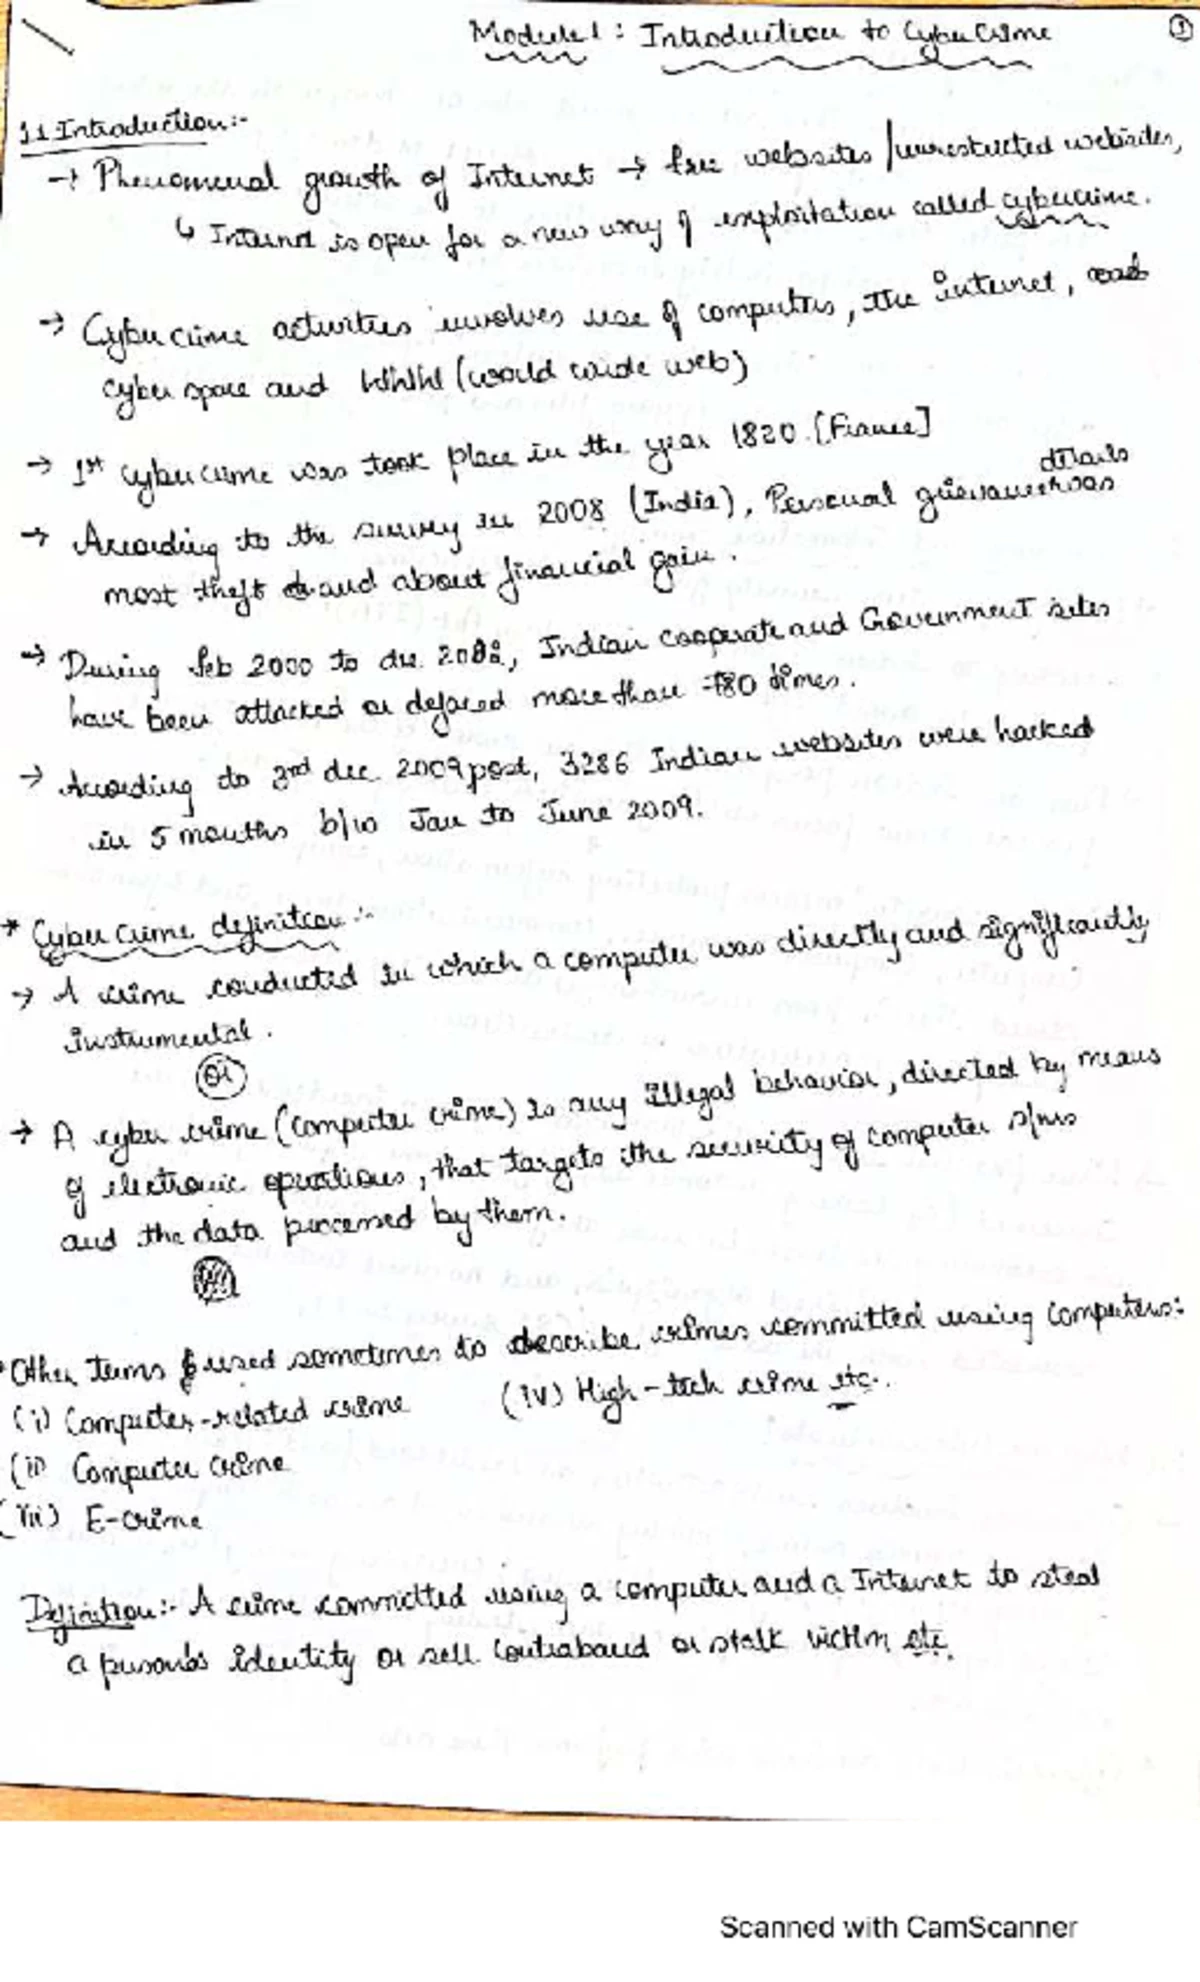 Module 1 : Introduction to CyberCrime ①
1.1 Introduction:-
→ Phenomenal growth of Internet → free websites / unrestricted websites,
↳ Internet is open for a new way of exploitation called cybercrime.
→ Cyber crime activities involves use of computers, the internet,
cyber space and WWW (world wide web)
→ 1st cybercrime was took place in the year 1820. [France]
details
→ According to the survey in 2008 (India), Personal grievances was
most theft and about financial gain.
→ During feb 2000 to dec. 2002, Indian cooperate and Government sites
have been attacked or defaced more than 780 times.
→ According to 3rd dec. 2009 post, 3286 Indian websites were hacked
in 5 months b/w Jan to June 2009.
* Cyber Crime definition :-
→ A crime conducted in which a computer was directly and significantly
instrumental.
(or)
→ A cyber crime (computer crime) is any illegal behavior, directed by means
of electronic operations, that targets the security of computer s/ms
and the data processed by them.
Other terms used sometimes to describe crimes committed using computers:-
(i) Computer-related crime (iv) High-tech crime etc..
(ii) Computer crime
(iii) E-crime
Definition:- A crime committed using a computer and a Internet to steal
a person's identity or sell contraband or stalk victim etc.
Scanned with CamScanner